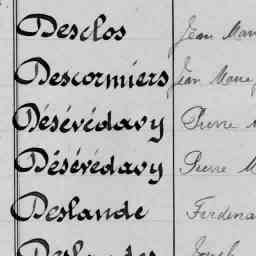 Desclos Jean Mari
Descormiers Jean Marie
Désévédavy Pierre
Désévédavy Pierre M
Deslande Ferdina
Deslandes Joseph